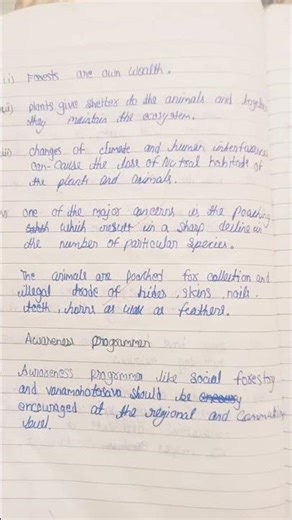 i) Forests are own wealth.
ii) plants give shelter to the animals and together
they maintain the ecosystem.
iii) changes of climate and human interference
can cause the loss of Nutral habitats of
the plants and animals.
one of the major concerns is the Poaching
which result in a sharp decline in
the number of particular species.
The animals are poached for collection and
illegal trade of hides, skins, nails,
teeth, horns as well as feathers.
Awareness programmer
Awareness programme like social forestry
and vanamohotasava should be
encouraged at the regional and community
level.